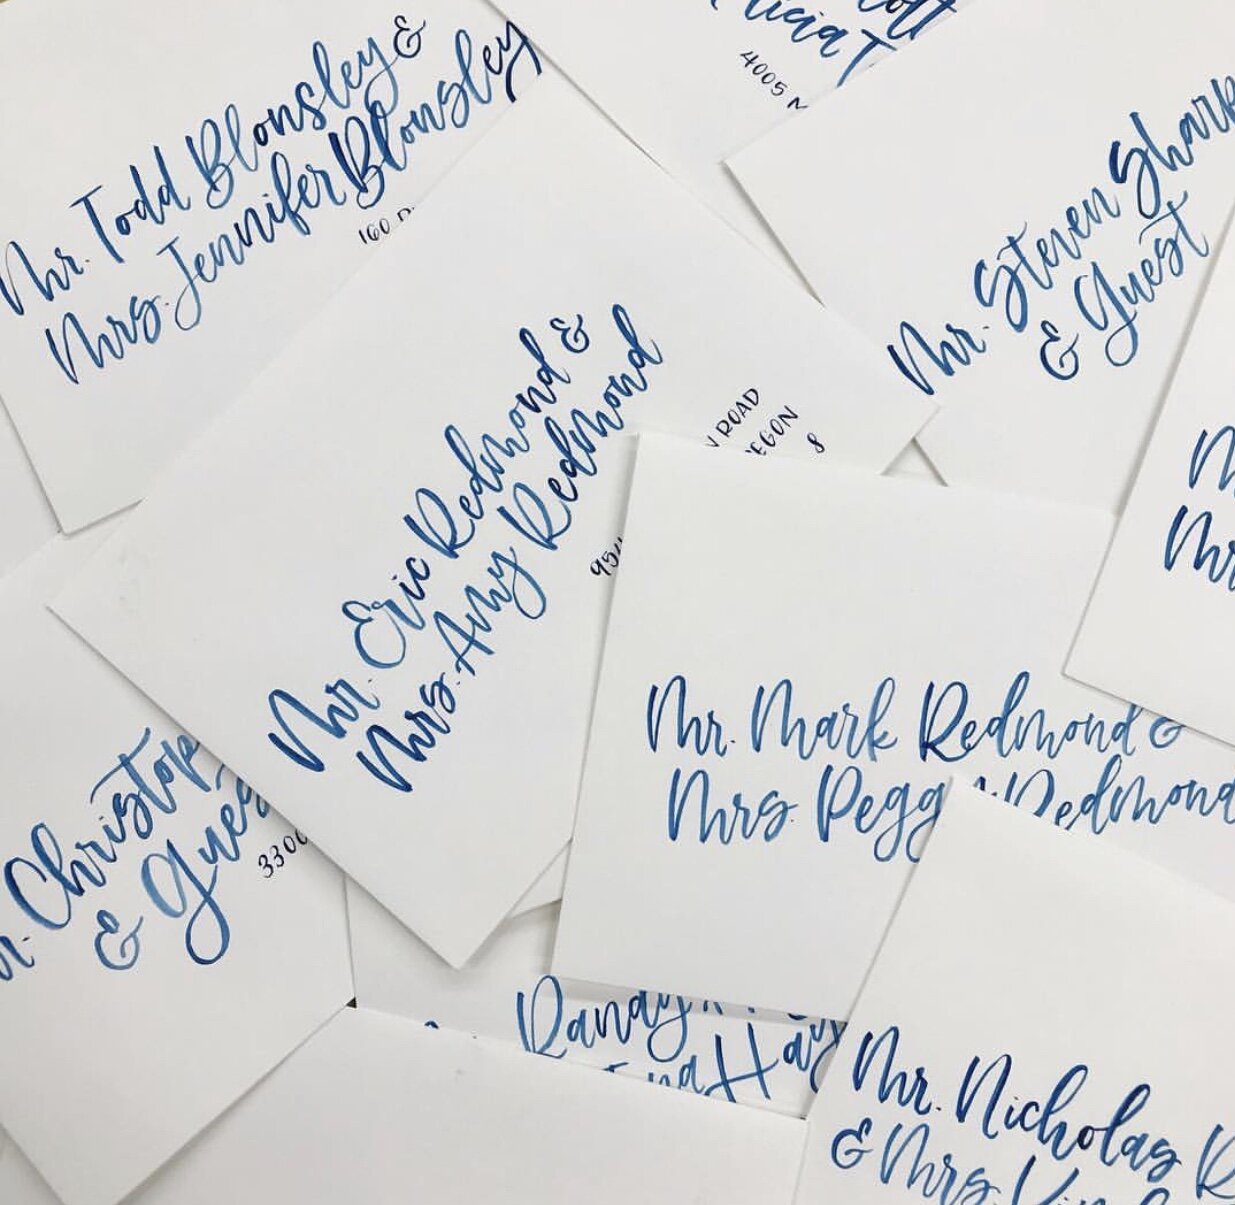 Mr. Todd Blonsley &
Mrs. Jennifer Blonsley
160
4005 N
Mr. Steven Shark
& Guest
Mr. Eric Redmond &
Mrs. Amy Redmond
ROAD
8
Mr. Mark Redmond &
Mrs. Pegg Redmond
Christop
& Gues
3300
Randy
Mr. Nicholas R
& Mrs.